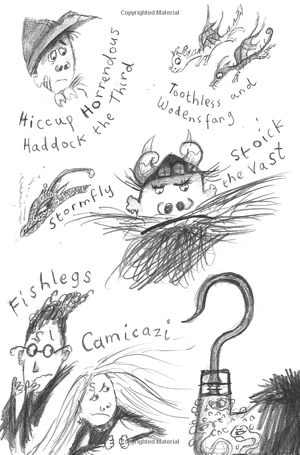 Copyrighted Material
Hiccup Horrendous
Haddock the Third
Toothless and
Wodensfang
Stormfly
Stoick
the Vast
Fishlegs
Camicazi